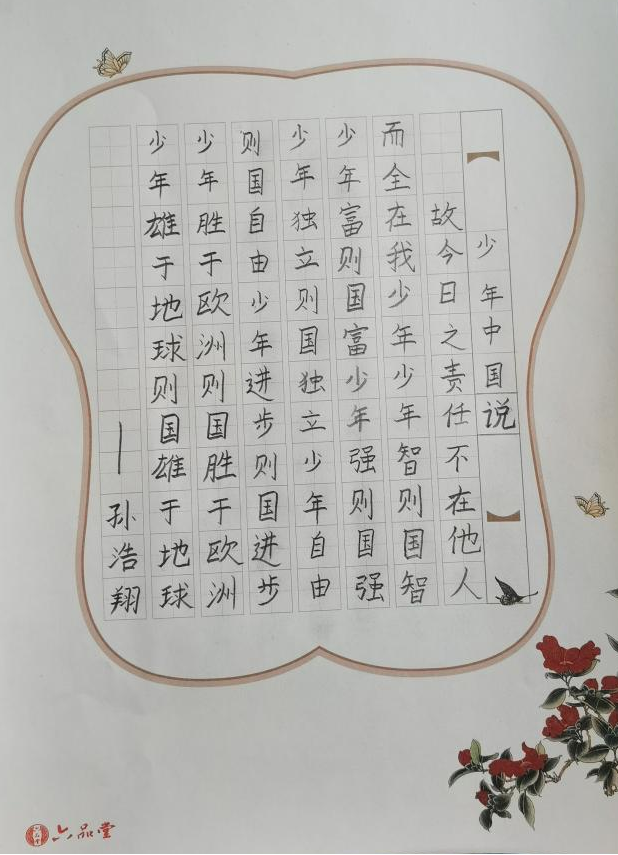 少年中国说
故今日之责任不在他人
而全在我少年少年智则国智
少年富则国富少年强则国强
少年独立则国独立少年自由
则国自由少年进步则国进步
少年胜于欧洲则国胜于欧洲
少年雄于地球则国雄于地球
—孙浩翔
六品堂